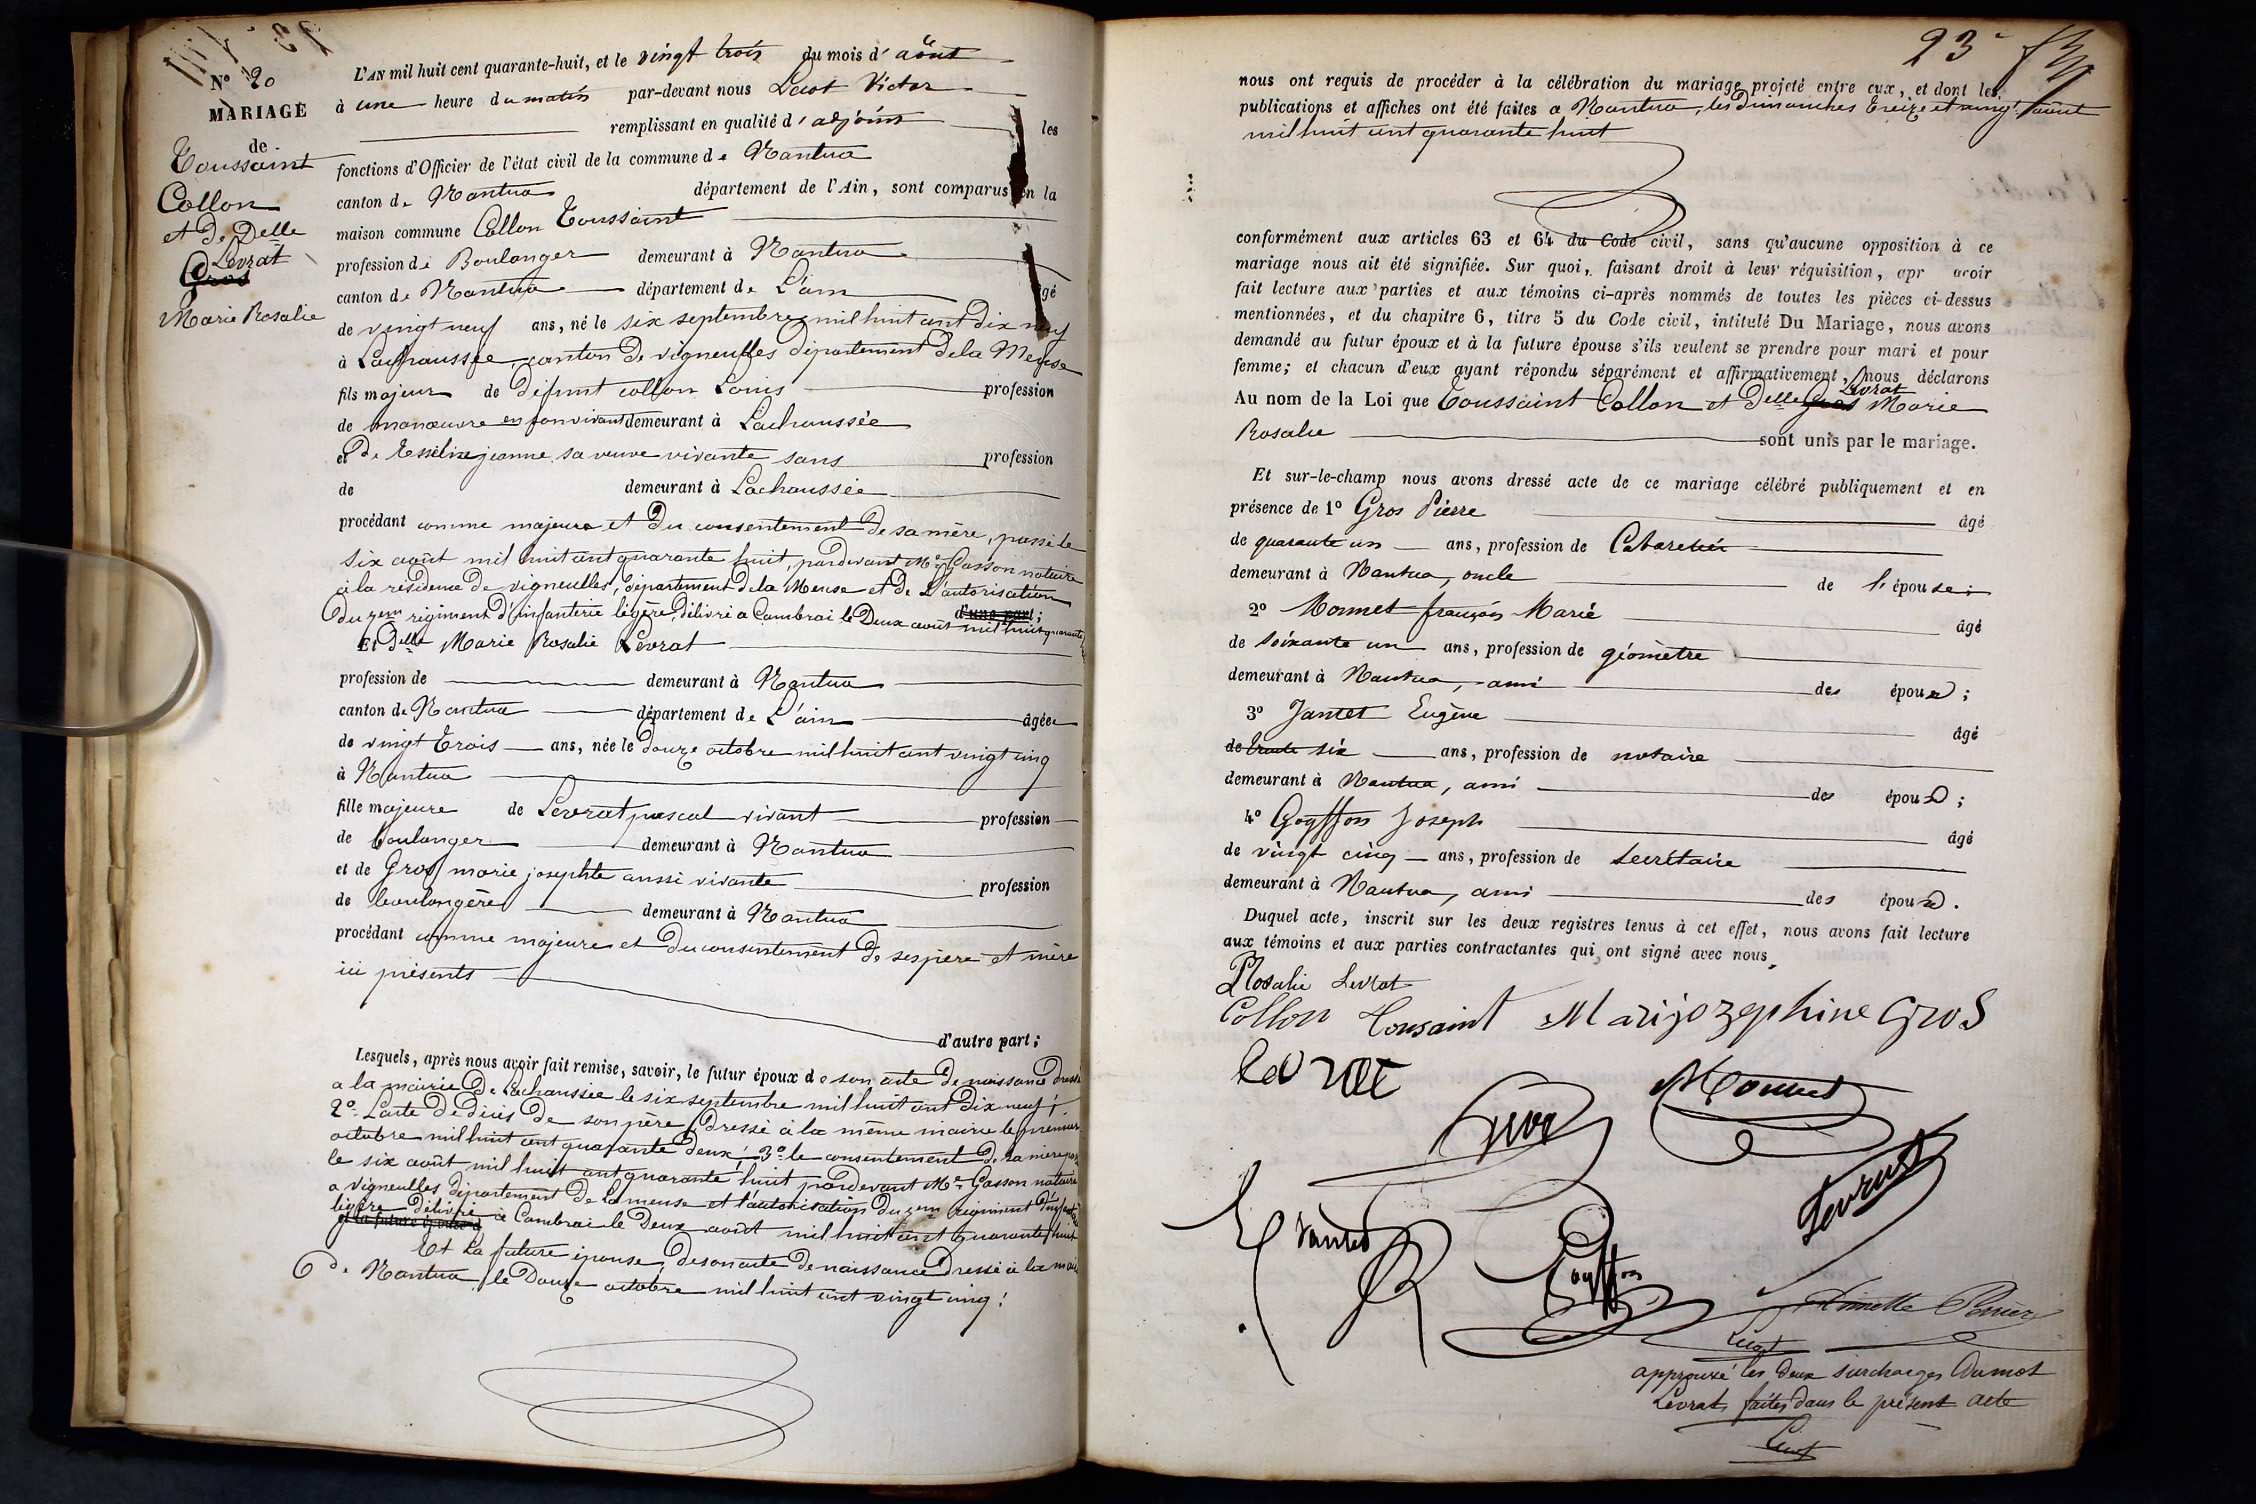 N° 20
MARIAGE
de
Toussaint
Collon
et de Delle
Levrat
Gros
Marie Rosalie
L'AN mil huit cent quarante-huit, et le vingt trois du mois d'août
à une heure du matin par-devant nous Lust Victor
remplissant en qualité d'adjoint les
fonctions d'Officier de l'état civil de la commune de Nantua
canton de Nantua département de l'Ain, sont comparus en la
maison commune Collon Toussaint
profession de Boulanger demeurant à Nantua
canton de Nantua département de L'ain âgé
de vingt neuf ans, né le six septembre mil huit cent dix neuf
à Lachaussée, canton de vigneulles département de la Meuse
fils majeur de défunt collon Louis profession
de manœuvre en son vivant demeurant à Lachaussée
et de jeanne sa veuve vivante sans profession
de demeurant à Lachaussée
procédant comme majeur et du consentement de sa mère, passé le
six août mil huit cent quarante huit, pardevant Me Gasson notaire
à la résidence de vigneulles, département de la Meuse et de L'autorisation
du régiment d'infanterie légère, délivré à Cambrai le Deux août mil huit quarante
d'une part;
Et Delle Marie Rosalie Levrat
profession de demeurant à Nantua
canton de Nantua département de L'ain âgée
de vingt trois ans, née le douze octobre mil huit cent vingt cinq
à Nantua
fille majeure de Levrat pascal vivant profession
de boulanger demeurant à Nantua
et de Gros marie josephte aussi vivante profession
de boulangère demeurant à Nantua
procédant comme majeure et du consentement de ses père et mère
ici présents
d'autre part;
Lesquels, après nous avoir fait remise, savoir, le futur époux de son acte de naissance dressé
a la mairie de Lachaussée le six septembre mil huit cent dix neuf;
2° L'acte de décès de son père, dressé à la même mairie le premier
octobre mil huit cent quarante deux; 3° le consentement de sa mère
le six août mil huit cent quarante huit pardevant Me Gasson notaire
a vigneulles département de la meuse et l'autorisation du régiment d'infanterie
légère délivré à Cambrai le Deux août mil huit cent quarante huit
et la future épouse d
Et la future épouse, de son acte de naissance dressé à la mairie
de Nantua le Douze octobre mil huit cent vingt cinq;
23
nous ont requis de procéder à la célébration du mariage projeté entre eux, et dont les
publications et affiches ont été faites a Nantua, les dimanches treize et vingt août
mil huit cent quarante huit
conformément aux articles 63 et 64 du Code civil, sans qu'aucune opposition à ce
mariage nous ait été signifiée. Sur quoi, faisant droit à leur réquisition, apr avoir
fait lecture aux parties et aux témoins ci-après nommés de toutes les pièces ci-dessus
mentionnées, et du chapitre 6, titre 5 du Code civil, intitulé Du Mariage, nous avons
demandé au futur époux et à la future épouse s'ils veulent se prendre pour mari et pour
femme; et chacun d'eux ayant répondu séparément et affirmativement, nous déclarons
Levrat
Au nom de la Loi que Toussaint Collon et Delle Gros Marie
Rosalie sont unis par le mariage.
Et sur-le-champ nous avons dressé acte de ce mariage célébré publiquement et en
présence de 1° Gros Pierre âgé
de quarante un ans, profession de Cabaretier
demeurant à Nantua, oncle de l'épouse;
2° Monnet françois Marie âgé
de soixante un ans, profession de géomètre
demeurant à Nantua, ami des époux;
3° Jantet Eugène âgé
de trente six ans, profession de notaire
demeurant à Nantua, ami des époux;
4° Goyffon Joseph âgé
de vingt cinq ans, profession de secrétaire
demeurant à Nantua, ami des époux.
Duquel acte, inscrit sur les deux registres tenus à cet effet, nous avons fait lecture
aux témoins et aux parties contractantes qui ont signé avec nous
Rosalie Levrat
Collon Tousaint Marijozephine Gros
levrat
Monnet
Gros
Levrat
E Jantet
Goyffon
Perrier
Lust
approuvé les deux surcharges du mot
Levrat faites dans le présent acte
Lust